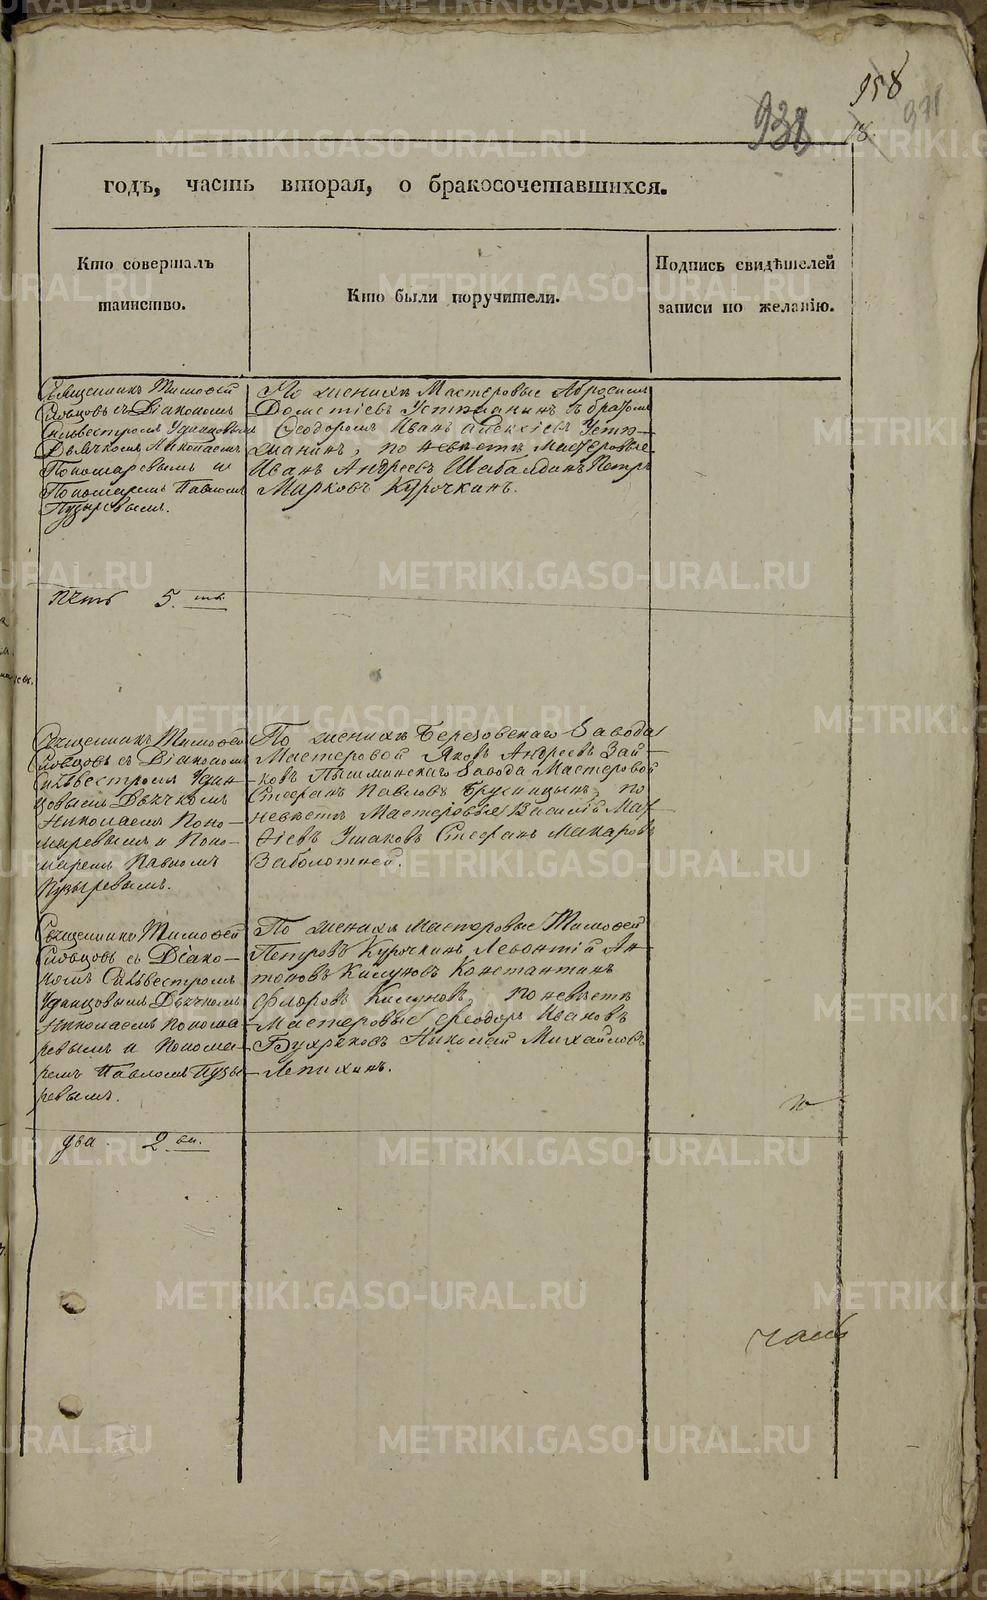 958
938
971
18.
годъ, часть вторая, о бракосочетавшихся.
Кто совершалъ
таинство.
Кто были поручители.
Подпись свидѣтелей
записи по желанію.
Священникъ Тимофей
Словцовъ съ Діакономъ
Силвестромъ Удинцовымъ
Дьячкомъ Николаемъ
Пономаревымъ и
Пономаремъ Павломъ
Пузыревымъ.
По женихѣ Мастеровые Абросимъ
Дометіевъ Устьянинъ съ братомъ
Ѳеодоромъ Иванъ Алексіевъ Устя-
нинъ, по невѣстѣ мастеровые
Иванъ Андреевъ Шабалдинъ Петръ
Марковъ Курочкинъ.
пять 5.
Священникъ Тимофей
Словцовъ съ Діакономъ
Силвестромъ Удин-
цовымъ Дьячкомъ
Николаемъ Поно-
маревымъ и Поно-
маремъ Павломъ
Пузыревымъ.
По женихѣ Березовскаго Завода
Мастеровой Яковъ Андреевъ Зай-
ковъ Пышминскаго Завода Мастеровой
Стефанъ Павловъ Брусницынъ, по
невѣстѣ Мастеровые Василій Мат-
ѳіевъ Ушаковъ Стефанъ Макаровъ
Заболотней.
Священникъ Тимофей
Словцовъ съ Діако-
номъ Силвестромъ
Удинцовымъ Дьячкомъ
Николаемъ Понома
ревымъ и Понома-
ремъ Павломъ Пузы-
ревымъ.
По женихѣ мастеровые Тимофей
Петровъ Курочкинъ Леонтій Ан-
тоновъ Кисуновъ Константинъ
Флоровъ Кисуновъ, по невѣстѣ
Мастеровые Ѳеодоръ Ивановъ
Бухряковъ Николай Михайловъ
Лепихинъ.
два. 2.
часть
METRIKI.GASO-URAL.RU